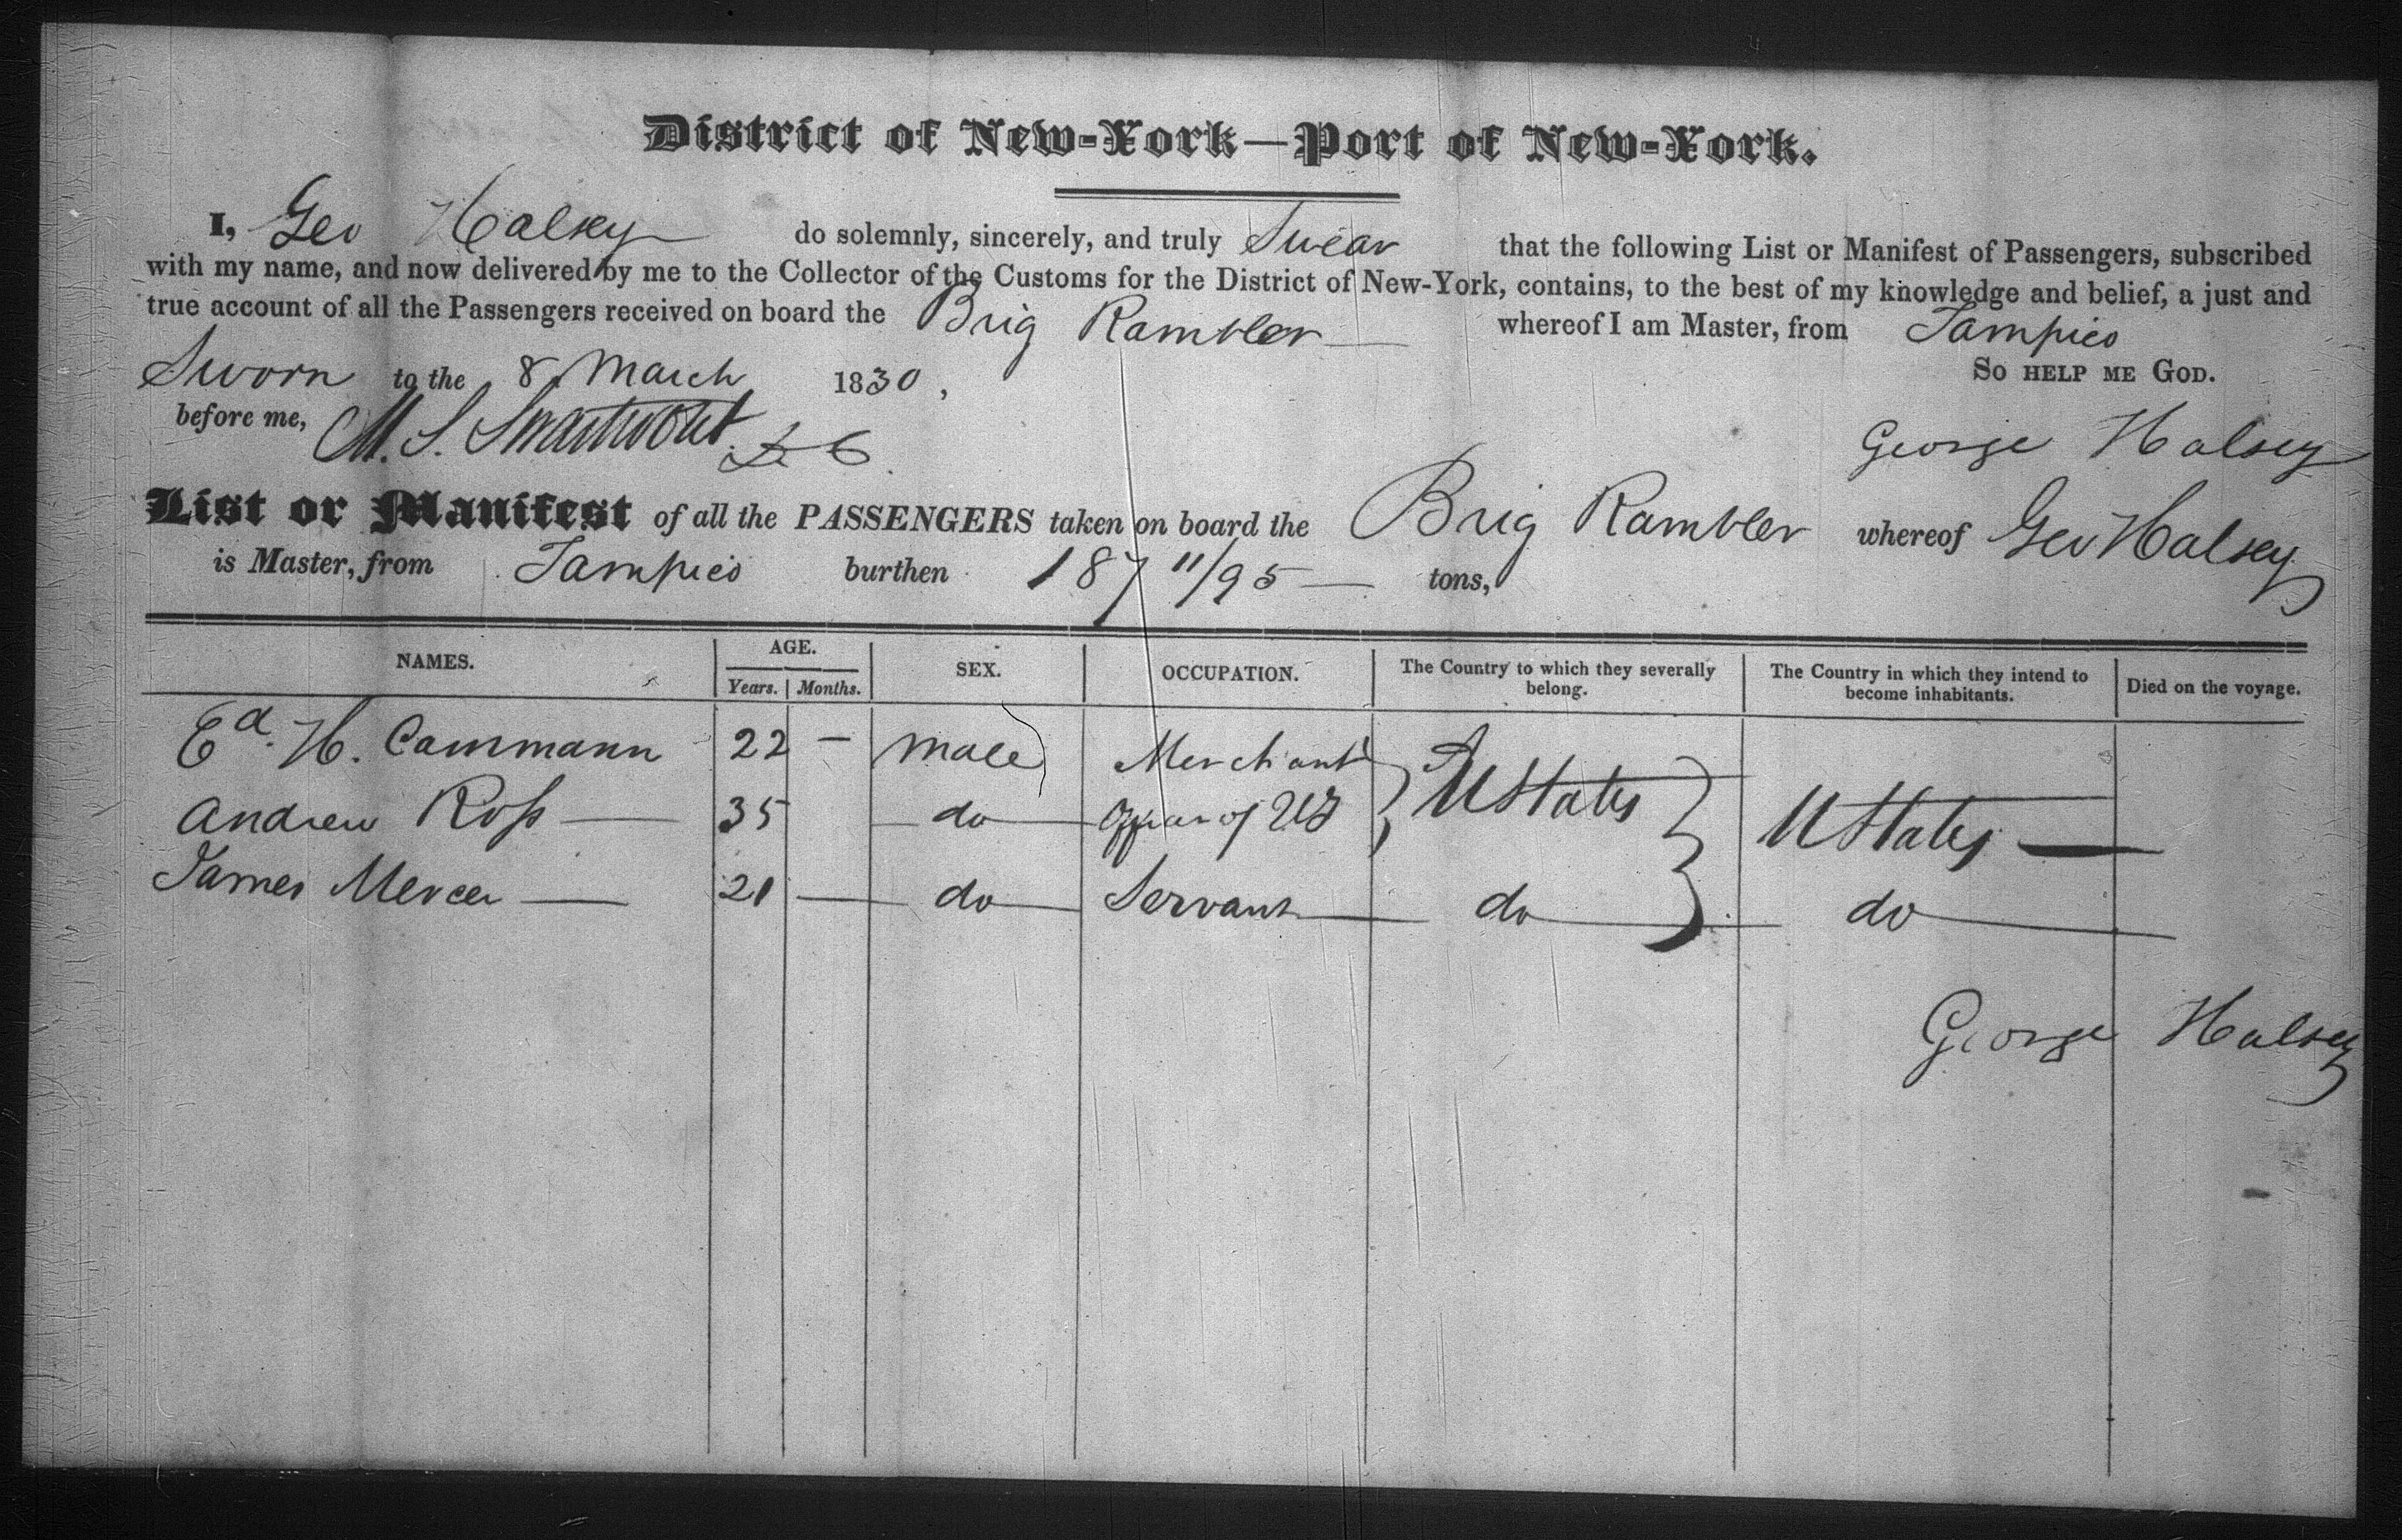 District of New-York—Port of New-York.
I, Geo Halsey do solemnly, sincerely, and truly Swear that the following List or Manifest of Passengers, subscribed
with my name, and now delivered by me to the Collector of the Customs for the District of New-York, contains, to the best of my knowledge and belief, a just and
true account of all the Passengers received on board the Brig Rambler whereof I am Master, from Tampico
Sworn to the 8 March 1830, So help me God.
before me, M. S. Swartwout George Halsey
List or Manifest of all the PASSENGERS taken on board the Brig Rambler whereof Geo Halsey
is Master, from Tampico burthen 187 11/95 tons,
NAMES. AGE. SEX. OCCUPATION. The Country to which they severally belong. The Country in which they intend to become inhabitants. Died on the voyage.
Years. Months.
Ed. H. Cammann 22 — male Merchant UStates
Andrew Ross — 35 do of US UStates —
James Mercer — 21 — do Servant do do
George Halsey